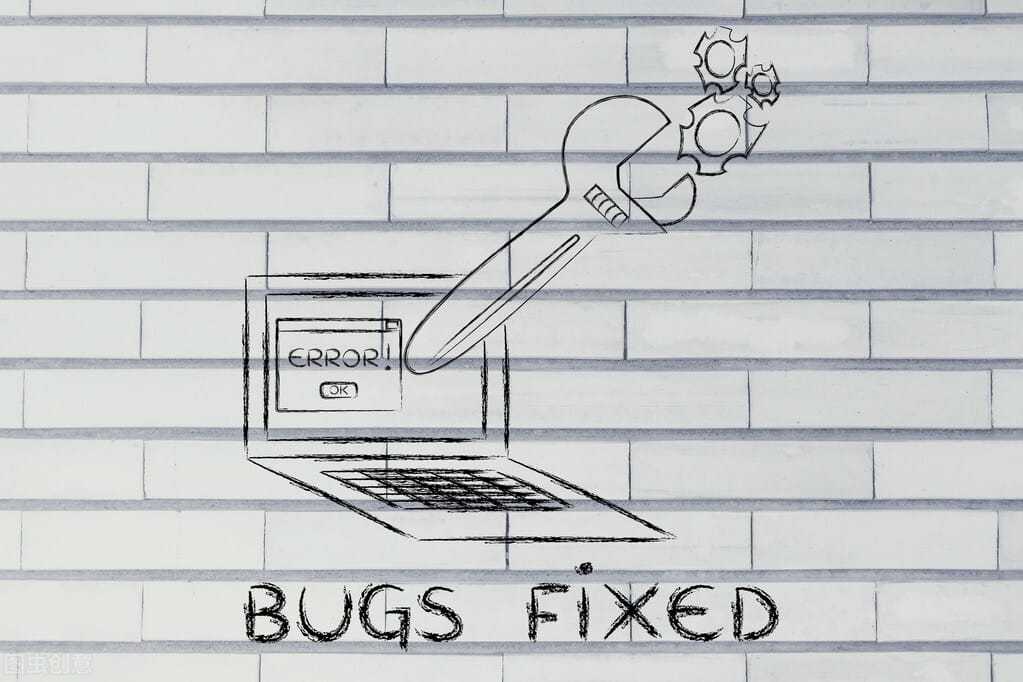 ERROR!
OK
BUGS FIXED
图虫创意